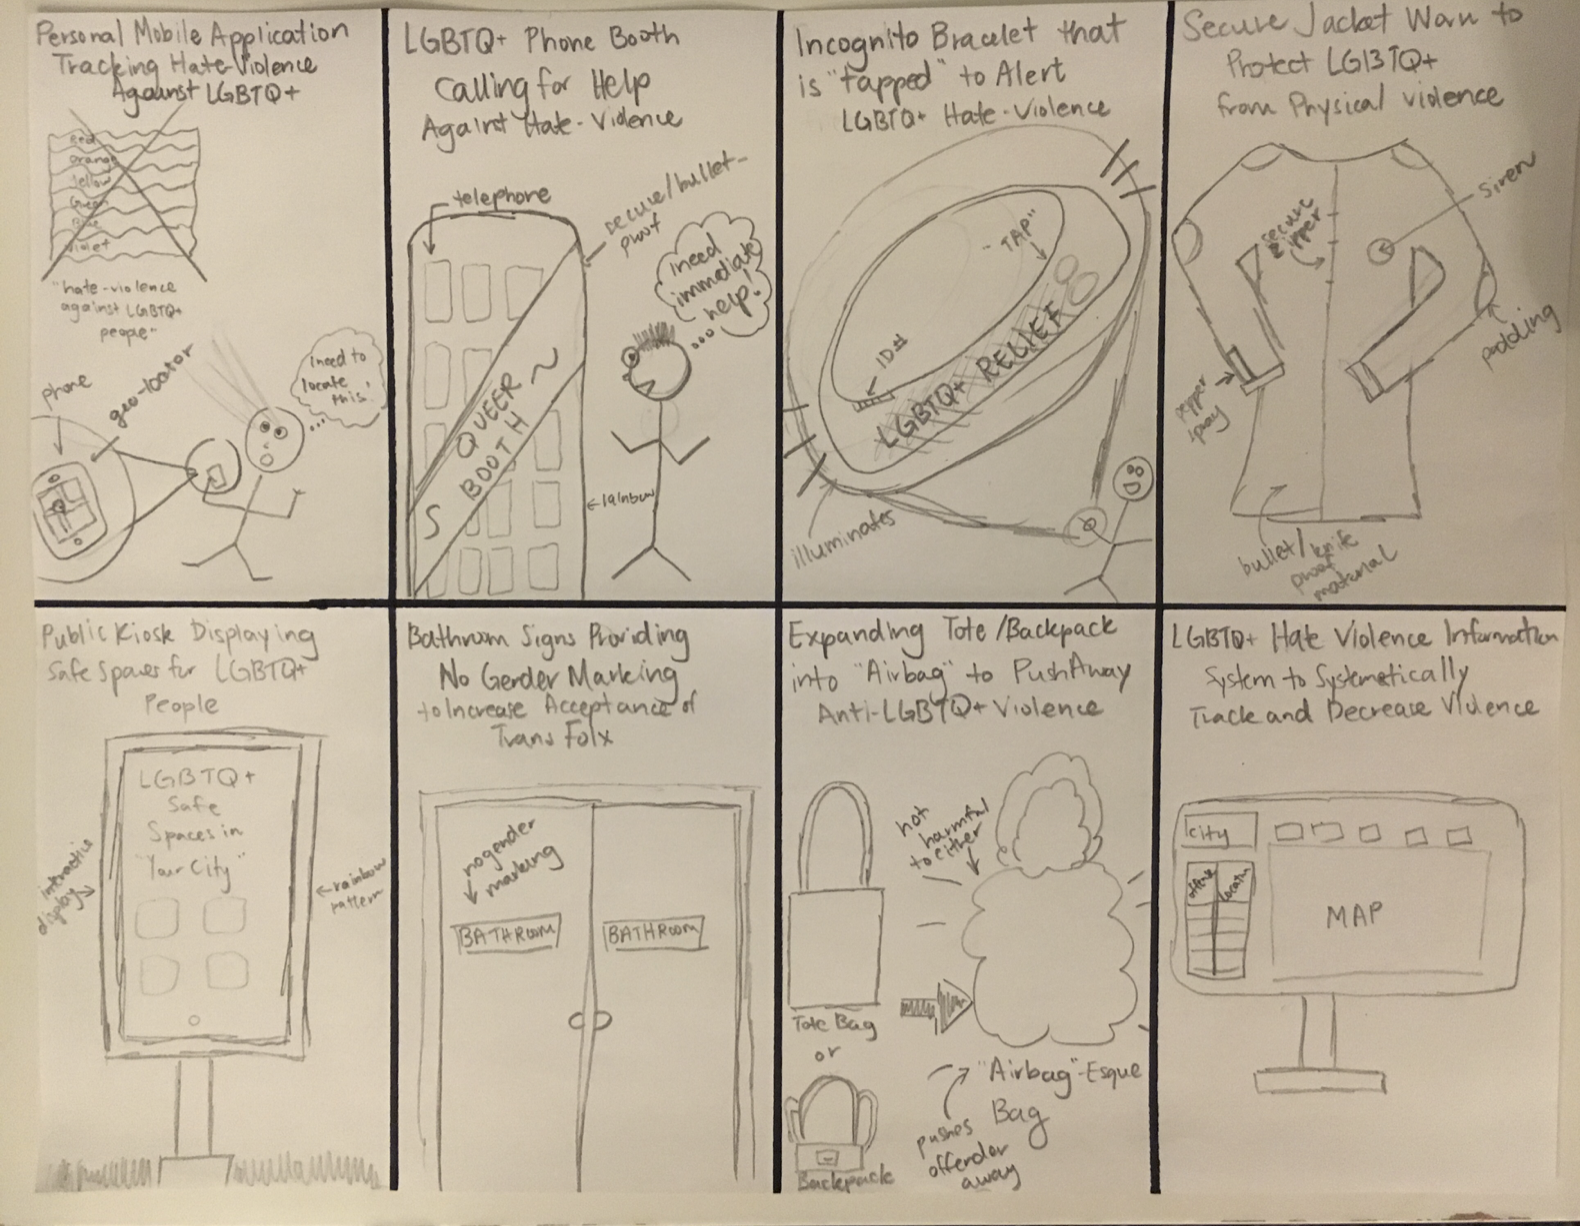 Personal Mobile Application
Tracking Hate-Violence
Against LGBTQ+
Red
Orange
Yellow
Green
Blue
Violet
"hate-violence
against LGBTQ+
people"
phone
geo-locator
i need to
locate
this!
LGBTQ+ Phone Booth
Calling for Help
Against Hate-Violence
telephone
secure/bullet-
proof
i need
immediate
help!
QUEER
BOOTH
rainbow
Incognito Bracelet that
is "tapped" to Alert
LGBTQ+ Hate-Violence
"TAP"
ID#
LGBTQ+ RELIEF
illuminates
Secure Jacket Warn to
Protect LGBTQ+
from Physical violence
secure
zipper
siren
padding
pepper
spray
bullet/knife
proof
material
Public Kiosk Displaying
Safe Spaces for LGBTQ+
People
LGBTQ+
Safe
Spaces in
"Your City"
interactive
display
rainbow
pattern
Bathroom Signs Providing
No Gender Marking
to Increase Acceptance of
Trans Folx
no gender
marking
BATHROOM
BATHROOM
Expanding Tote/Backpack
into "Airbag" to Push Away
Anti-LGBTQ+ Violence
not
harmful
to either
Tote Bag
or
Backpack
"Airbag"-Esque
Bag
pushes
offender
away
LGBTQ+ Hate Violence Information
System to Systemetically
Track and Decrease Violence
city
offense
location
MAP